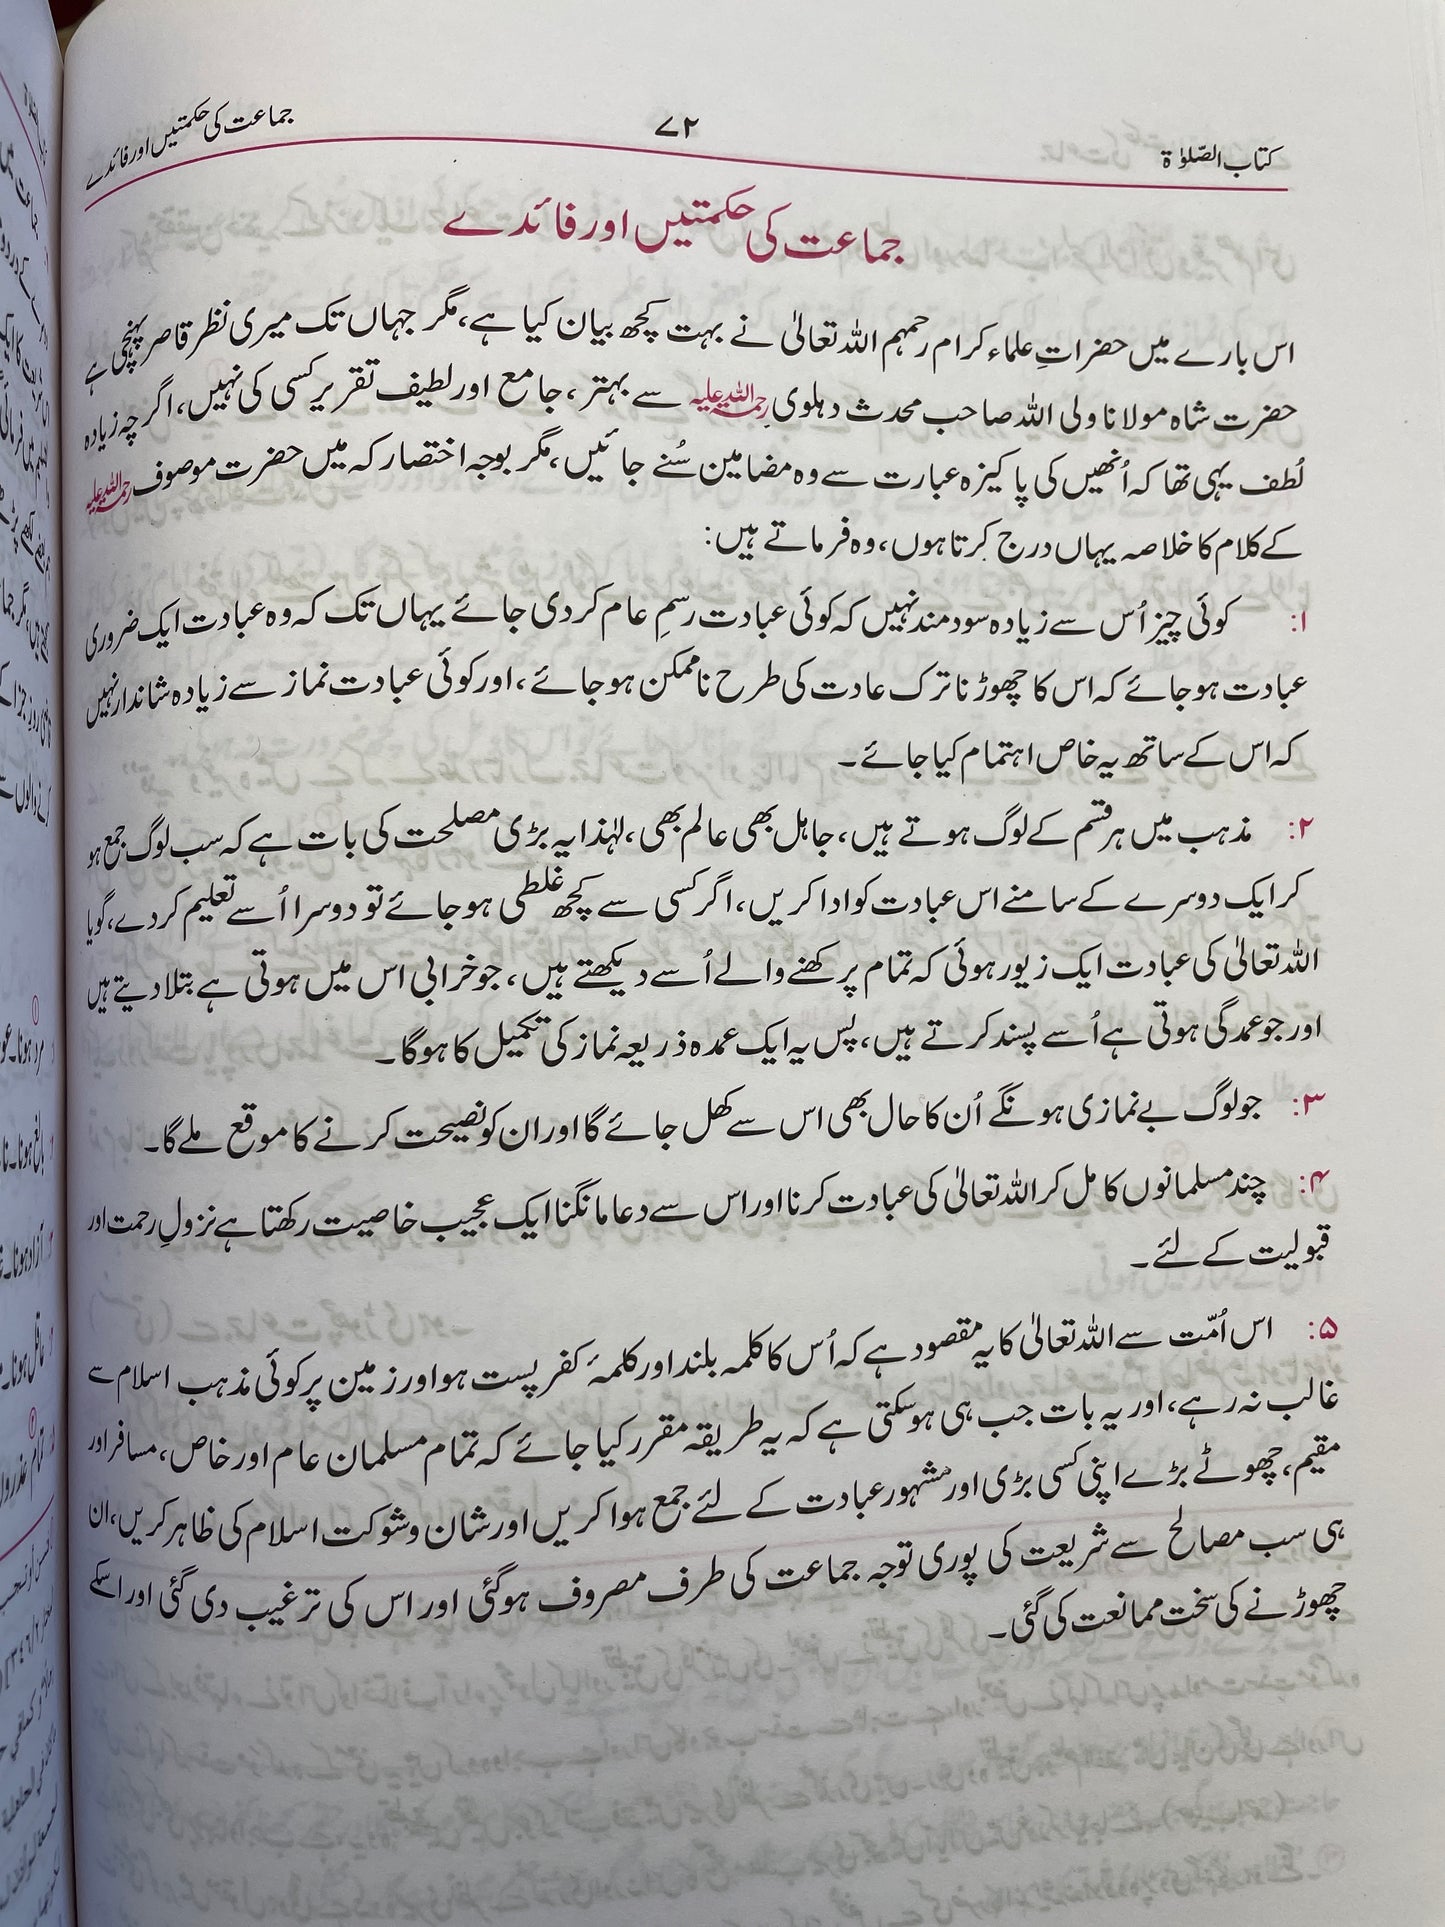 کتاب الصّلوٰۃ
۷۲
جماعت کی حکمتیں اور فائدے
جماعت کی حکمتیں اور فائدے
اس بارے میں حضراتِ علماء کرام رحمہم اللہ تعالیٰ نے بہت کچھ بیان کیا ہے، مگر جہاں تک میری نظر قاصر پہنچی ہے
حضرت شاہ مولانا ولی اللہ صاحب محدث دہلوی رحمۃ اللہ علیہ سے بہتر، جامع اور لطیف تقریر کسی کی نہیں، اگر چہ زیادہ
لُطف یہی تھا کہ اُنھیں کی پاکیزہ عبارت سے وہ مضامین سُنے جائیں، مگر بوجہ اختصار کہ میں حضرت موصوف رحمۃ اللہ علیہ
کے کلام کا خلاصہ یہاں درج کرتا ہوں، وہ فرماتے ہیں:
۱: کوئی چیز اُس سے زیادہ سود مند نہیں کہ کوئی عبادت رسمِ عام کر دی جائے یہاں تک کہ وہ عبادت ایک ضروری
عبادت ہو جائے کہ اس کا چھوڑنا ترک عادت کی طرح ناممکن ہو جائے، اور کوئی عبادت نماز سے زیادہ شاندار نہیں
کہ اس کے ساتھ یہ خاص اہتمام کیا جائے۔
۲: مذہب میں ہر قسم کے لوگ ہوتے ہیں، جاہل بھی عالم بھی، لہٰذا یہ بڑی مصلحت کی بات ہے کہ سب لوگ جمع ہو
کر ایک دوسرے کے سامنے اس عبادت کو ادا کریں، اگر کسی سے کچھ غلطی ہو جائے تو دوسرا اُسے تعلیم کر دے، گویا
اللہ تعالیٰ کی عبادت ایک زیور ہوئی کہ تمام پرکھنے والے اُسے دیکھتے ہیں، جو خرابی اس میں ہوتی ہے بتلا دیتے ہیں
اور جو عمدگی ہوتی ہے اُسے پسند کرتے ہیں، پس یہ ایک عمدہ ذریعہ نماز کی تکمیل کا ہوگا۔
۳: جو لوگ بے نمازی ہونگے اُن کا حال بھی اس سے کھل جائے گا اور ان کو نصیحت کرنے کا موقع ملے گا۔
۴: چند مسلمانوں کا مل کر اللہ تعالیٰ کی عبادت کرنا اور اس سے دعا مانگنا ایک عجیب خاصیت رکھتا ہے نزولِ رحمت اور
قبولیت کے لئے۔
۵: اس اُمّت سے اللہ تعالیٰ کا یہ مقصود ہے کہ اُس کا کلمہ بلند اور کلمۂ کفر پست ہو اور زمین پر کوئی مذہب اسلام سے
غالب نہ رہے، اور یہ بات جب ہی ہو سکتی ہے کہ یہ طریقہ مقرر کیا جائے کہ تمام مسلمان عام اور خاص، مسافر اور
مقیم، چھوٹے بڑے اپنی کسی بڑی اور مشہور عبادت کے لئے جمع ہوا کریں اور شان و شوکت اسلام کی ظاہر کریں، ان
ہی سب مصالح سے شریعت کی پوری توجہ جماعت کی طرف مصروف ہوگئی اور اس کی ترغیب دی گئی اور اسکے
چھوڑنے کی سخت ممانعت کی گئی۔